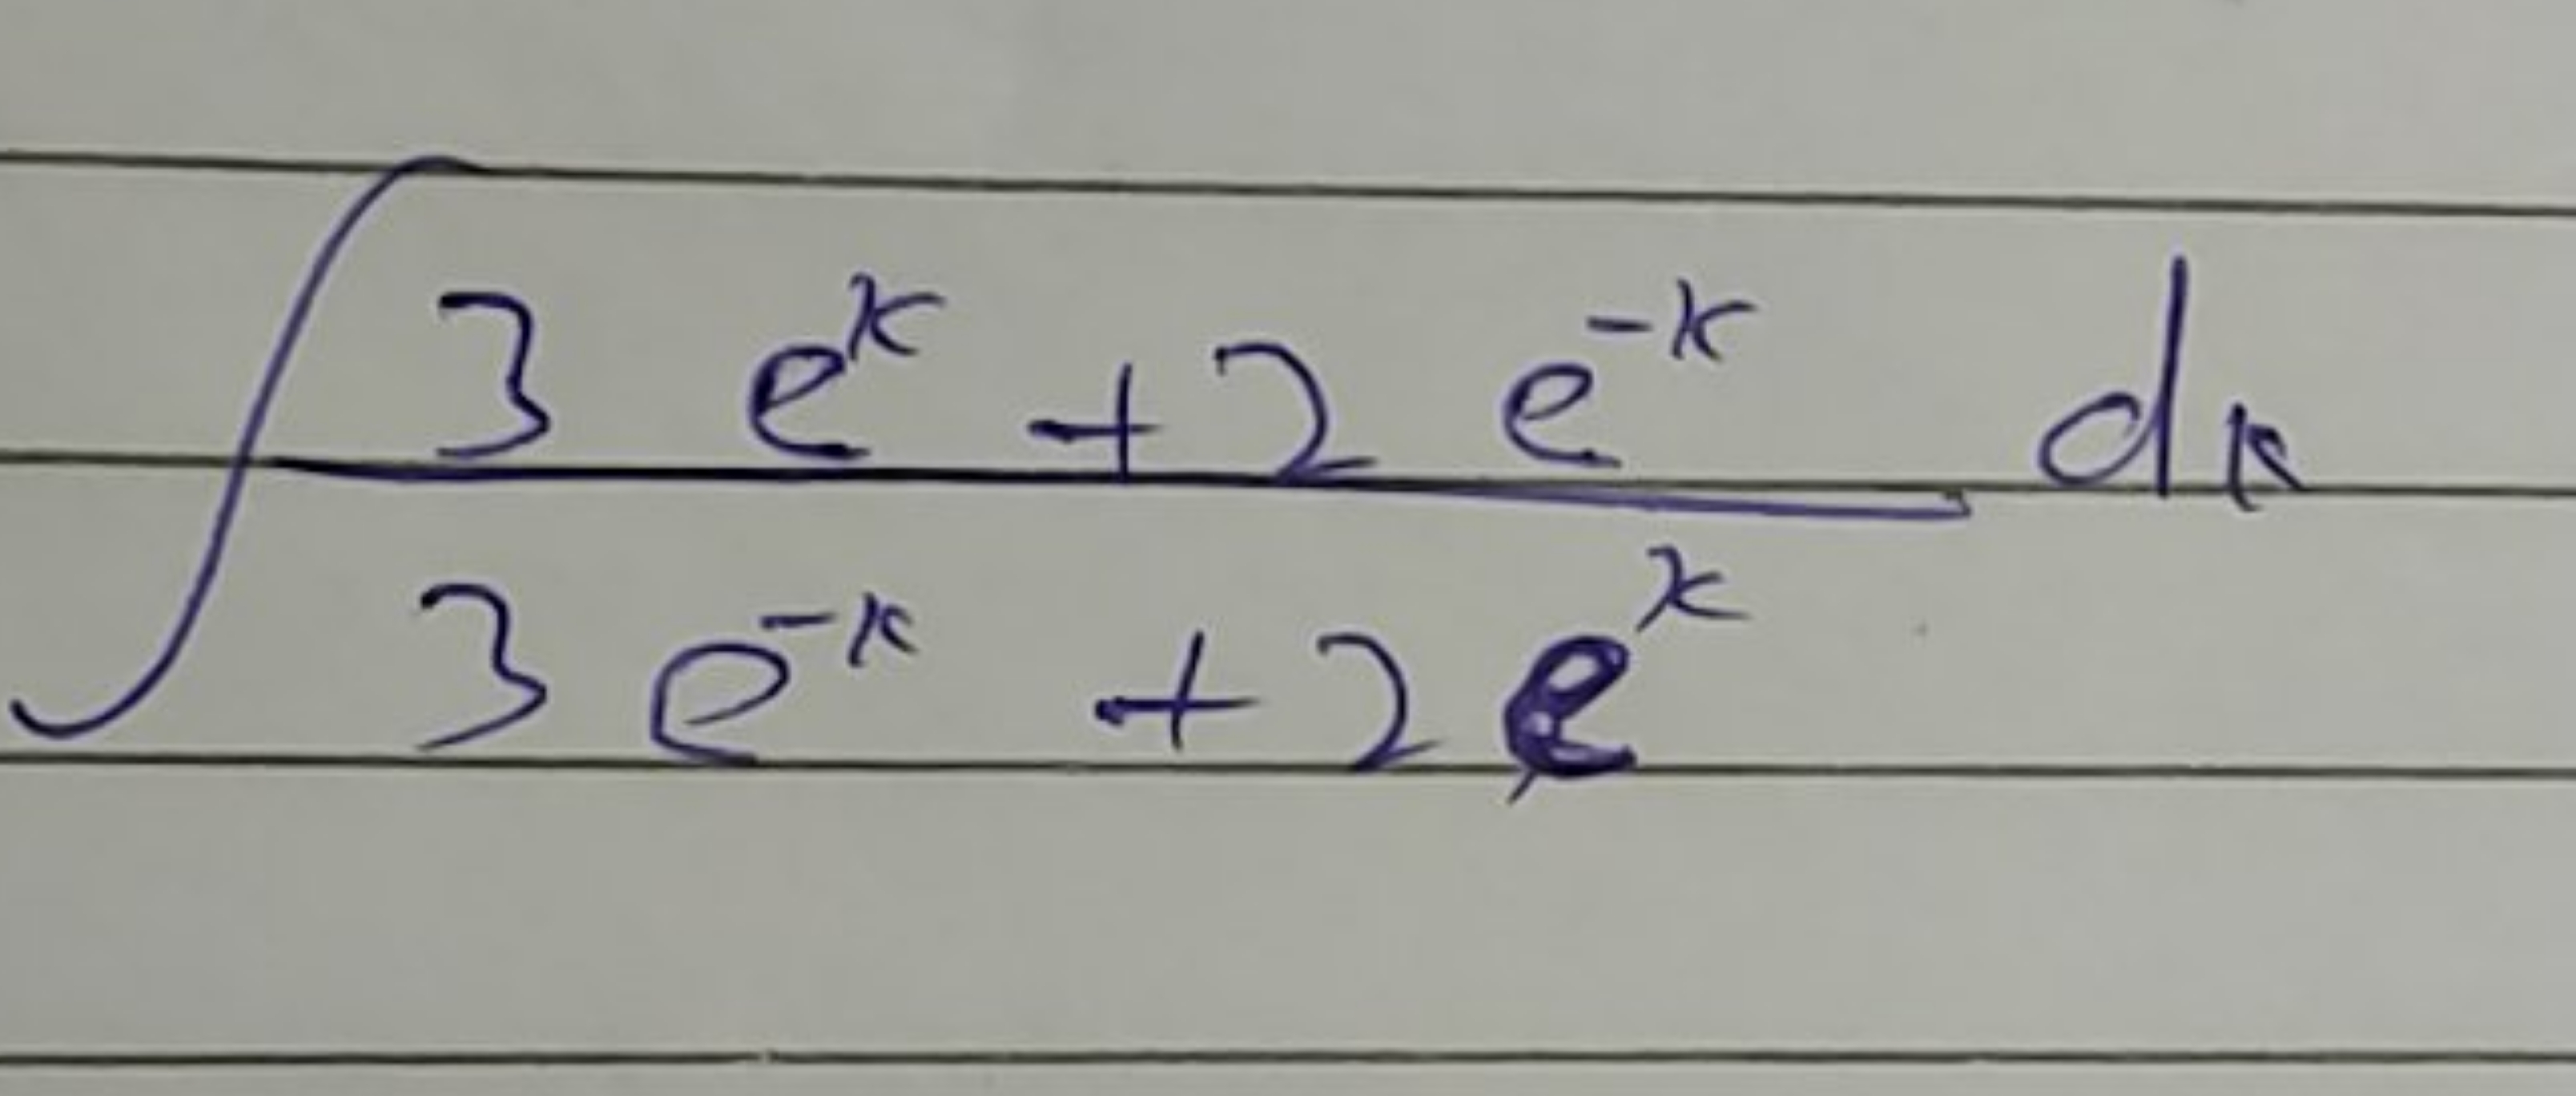 ∫ (3 e^x + 2 e^{-x}) / (3 e^{-x} + 2 e^x) dx